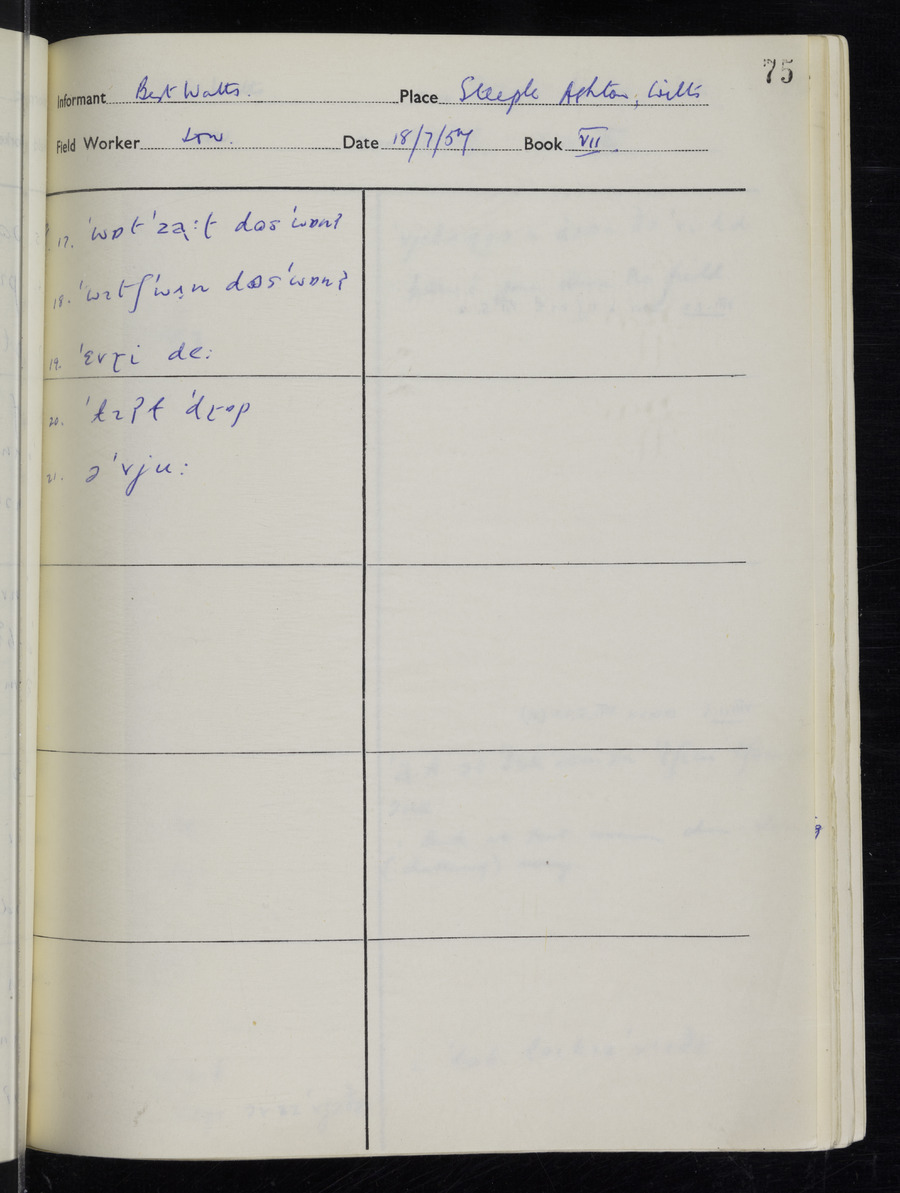 75
Informant Bert Watts. Place Steeple Ashton, Wilts
Field Worker Date 18/7/57 Book VII.
17. ˈwɒt ˈza̜ːt dɒs ˈwɒnʔ
18. ˈwɪtʃ ˈwɜn dɒs ˈwɒnʔ
19. ˈɛvɽi deː
20. ˈtɪʔt ˈdɽɒp
21. ə ˈvjuː